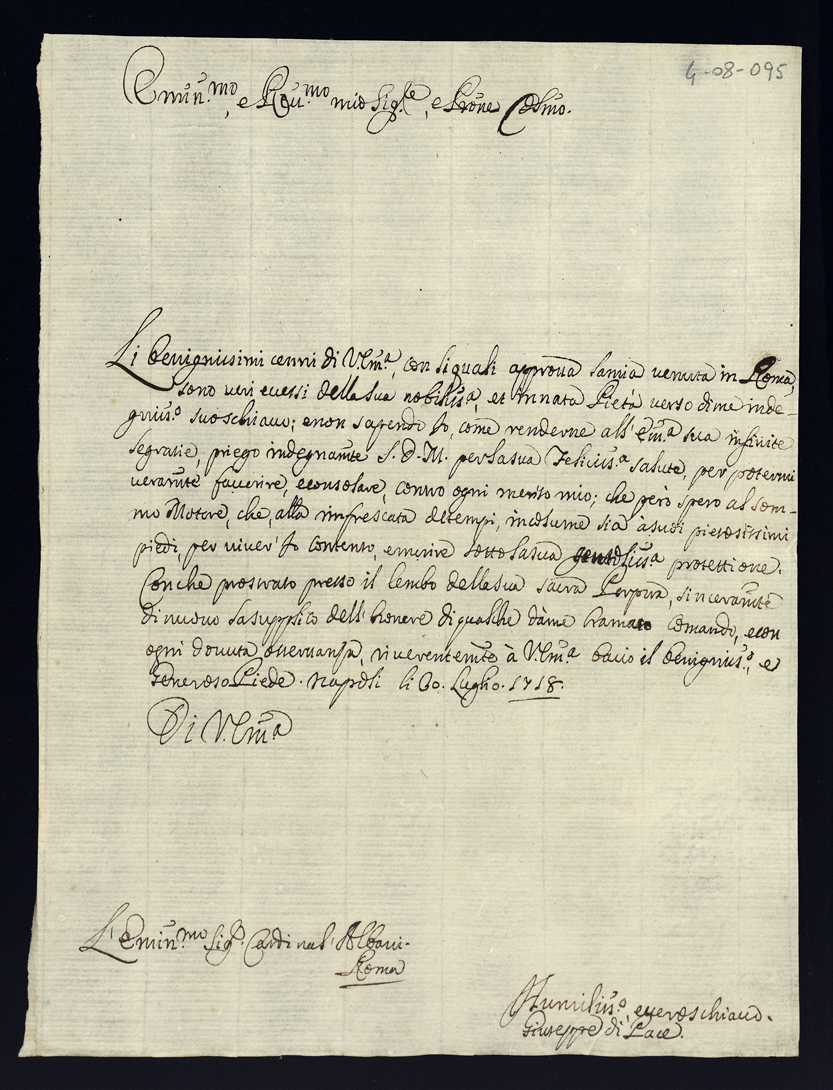 4-08-095
Emin.mo, e Rev.mo mio Sig.re, e Prōne Colmo.
Li benignissimi cenni di V. Em.a, con li quali approva la mia venuta in Roma,
sono veri eccessi della sua nobiliss.a, et innata Pietà verso di me inde-
gniss.o suo schiavo; e non sapendo Io, come renderne all' Em.a sua infinite
le gratie, priego indegnam.te S. D. M. per la sua feliciss.a salute, per potermi
veram.te favorire, e consolare, contro ogni merito mio; che però spero al Som-
mo Motore, che, alla rinfrescata de tempi, incolume sia à suoi pietosissimi
piedi, per viver' Io contento, e morire sotto la sua gentiliss.a protettione.
Con che prostrato presso il lembo della sua sacra Porpora, sinceram.te
di nuovo la supplico dell' honore di qualche da me bramato comando, e con
ogni dovuta osservanza, riverentem.te à V. Em.a bacio il benigniss.o, e
generoso Piede. Napoli li 30. Luglio. 1718.
Di V. Em.a
L' Emin.mo Sig.r Cardinal' Albani.
Roma
Humiliss.o, e vero schiavo.
Giuseppe di Pace.